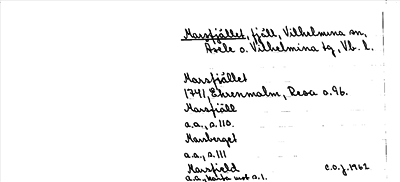 Marsfjället, fjäll, Vilhelmina sn,
Åsele o. Vilhelmina tg, Vb. l.
Marsfjället
1741, Ehrenmalm, Resa s. 96.
Marsfjäll
a.a., s. 110.
Marsberget
a.a., s. 111
Marsfield C.O.J. 1962
a.a., karta mot s. 1.